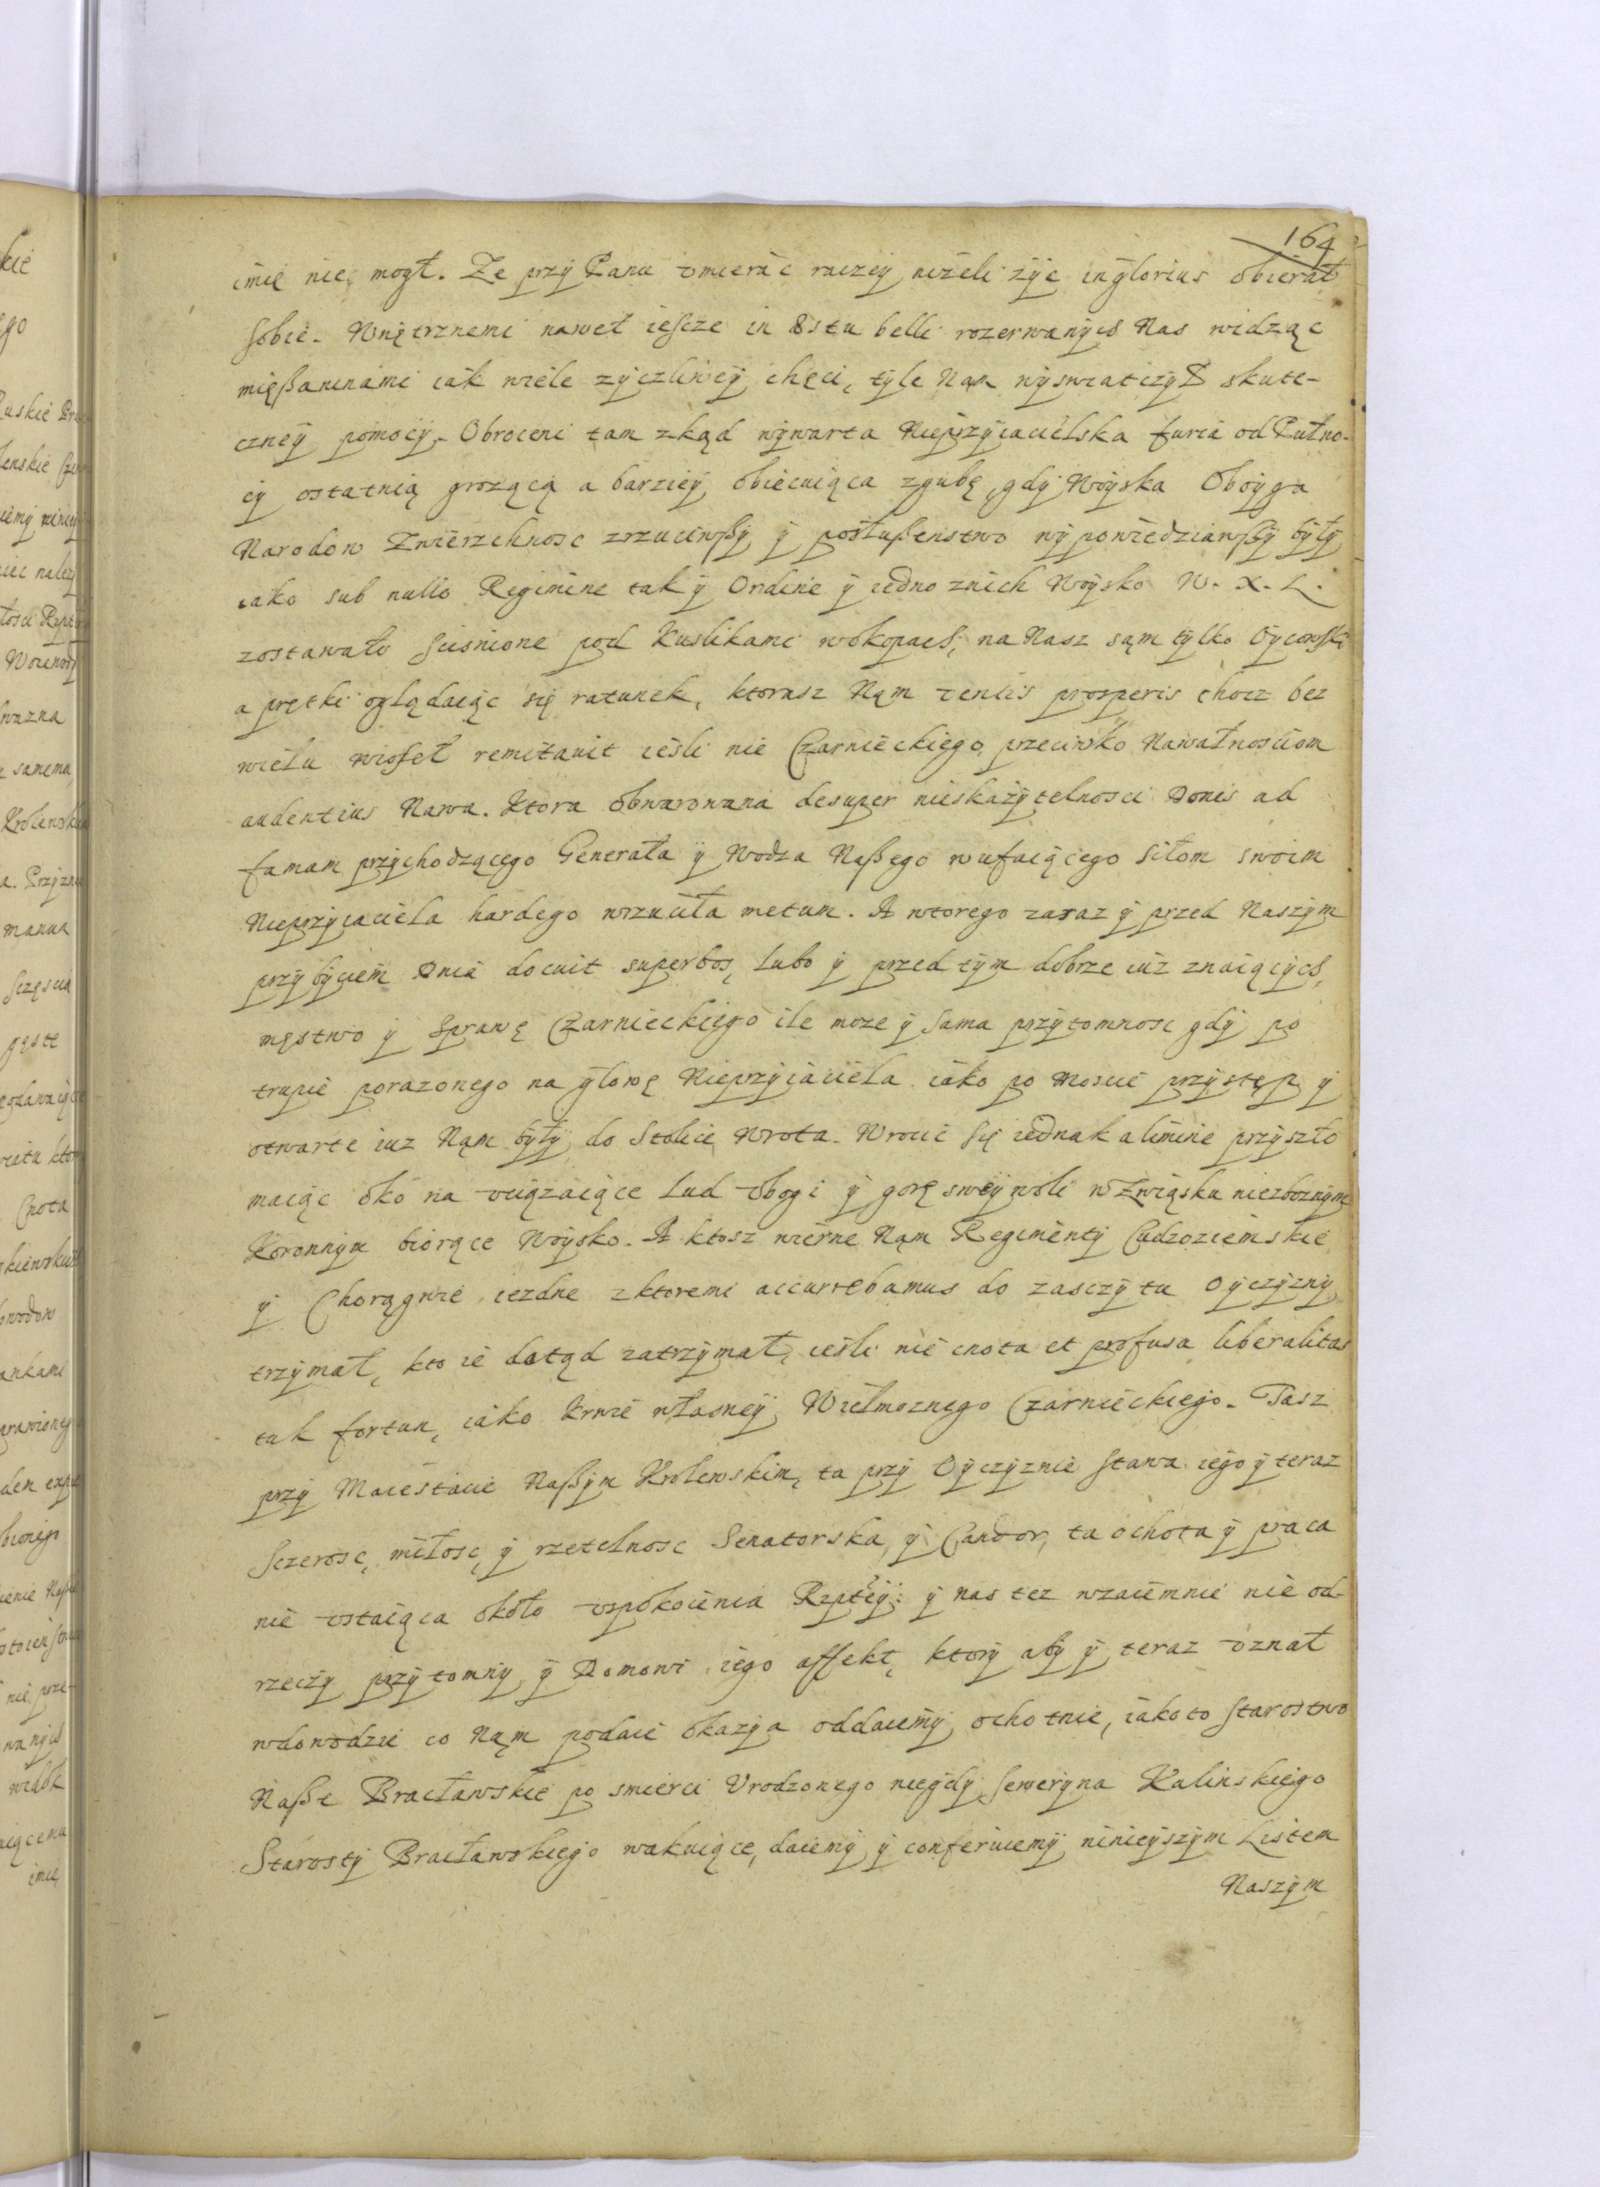 164
imię nie mogł. Ze przy Panu vmierać raczey niżeli żyć inglorius obierał
sobie. Wnętrznemi nawet iescze in æstu belli rozerwanych Nas widząc
mięßaninami iak wiele zyczliwey chęci, tyle Nam wyswiatczył skute-
czney pomocy. Obroceni tam zkąd wywarta Nieprzyiacielska furia od Pułno-
cy ostatnią grozącą a barziey obiecuiąca zgubę, gdy Woyska Oboyga
Narodow Zwierzchnosc zrzuciwßy y posłußenstwo wypowiedziawßy były
iako sub nullo Regimine tak y Ordine y iedno znich Woysko W. X. L.
zostawało scisnione pod Kuslikami wokopach, na Nasz sąm tylko Oycowski
a prętki oglądaiąc się ratunek, ktorasz Nąm ventis prosperis chocz bez
wielu wioseł remitauit ieśli nie Czarnieckiego przeciwko Nawałnosciom
audentius Nawa. Ktora obwarowana desuper nieskazytelnosci Donis ad
famam przychodzącego Generała y Wodza Naßego wufaiącego siłom swoim
Nieprzyiaciela hardego wrzuciła metum. A wtorego zaraz y przed Naszym
przybyciem Dnia docuit superbos, lubo y przed tym dobrze iuz znaiących,
męstwo y sprawę Czarnieckiego ile moze y sama przytomnosc gdy po
trupie porazonego na głowę Nieprzyiaciela iako po Moscie przystęp y
otwarte iuz Nąm były do Stolice Wrota. Wrocic się iednak a limine przyszło
maiąc oko na vciązaiące lud vbogi y gorę swey woli w Związku niezboznym
Koronnym biorące Woysko. A ktosz wierne Nąm Regimenty Cudzoziemskie
y Chorągwie iezdne z ktoremi accurrebamus do zasczytu Oyczyzny
trzymał, kto ie dotąd zatrzymał, ieśli nie cnota et profusa liberalitas
tak fortun, iako Krwie własney Wielmoznego Czarnieckiego. Tasz
przy Maiestacie Naßym Krolewskim, ta przy Oyczyznie stawa iego y teraz
sczerosc, miłosc, y rzetelnosc Senatorska, y Candor, ta ochota y praca
nie vstaiąca około vspokoienia Rzptey: y nas tez wzaiemnie nie od-
rzeczy przytomny y Domowi iego affekt, ktory aby y teraz vznał
wdowodzie co Nąm podaie okazya oddaiemy ochotnie, iako to starostwo
Naße Bracławskie po smierci Vrodzonego niegdy Seweryna Kalinskiego
Starosty Bracławskiego wakuiące, daiemy y conferuiemy ninieyszym Listem
Naszym